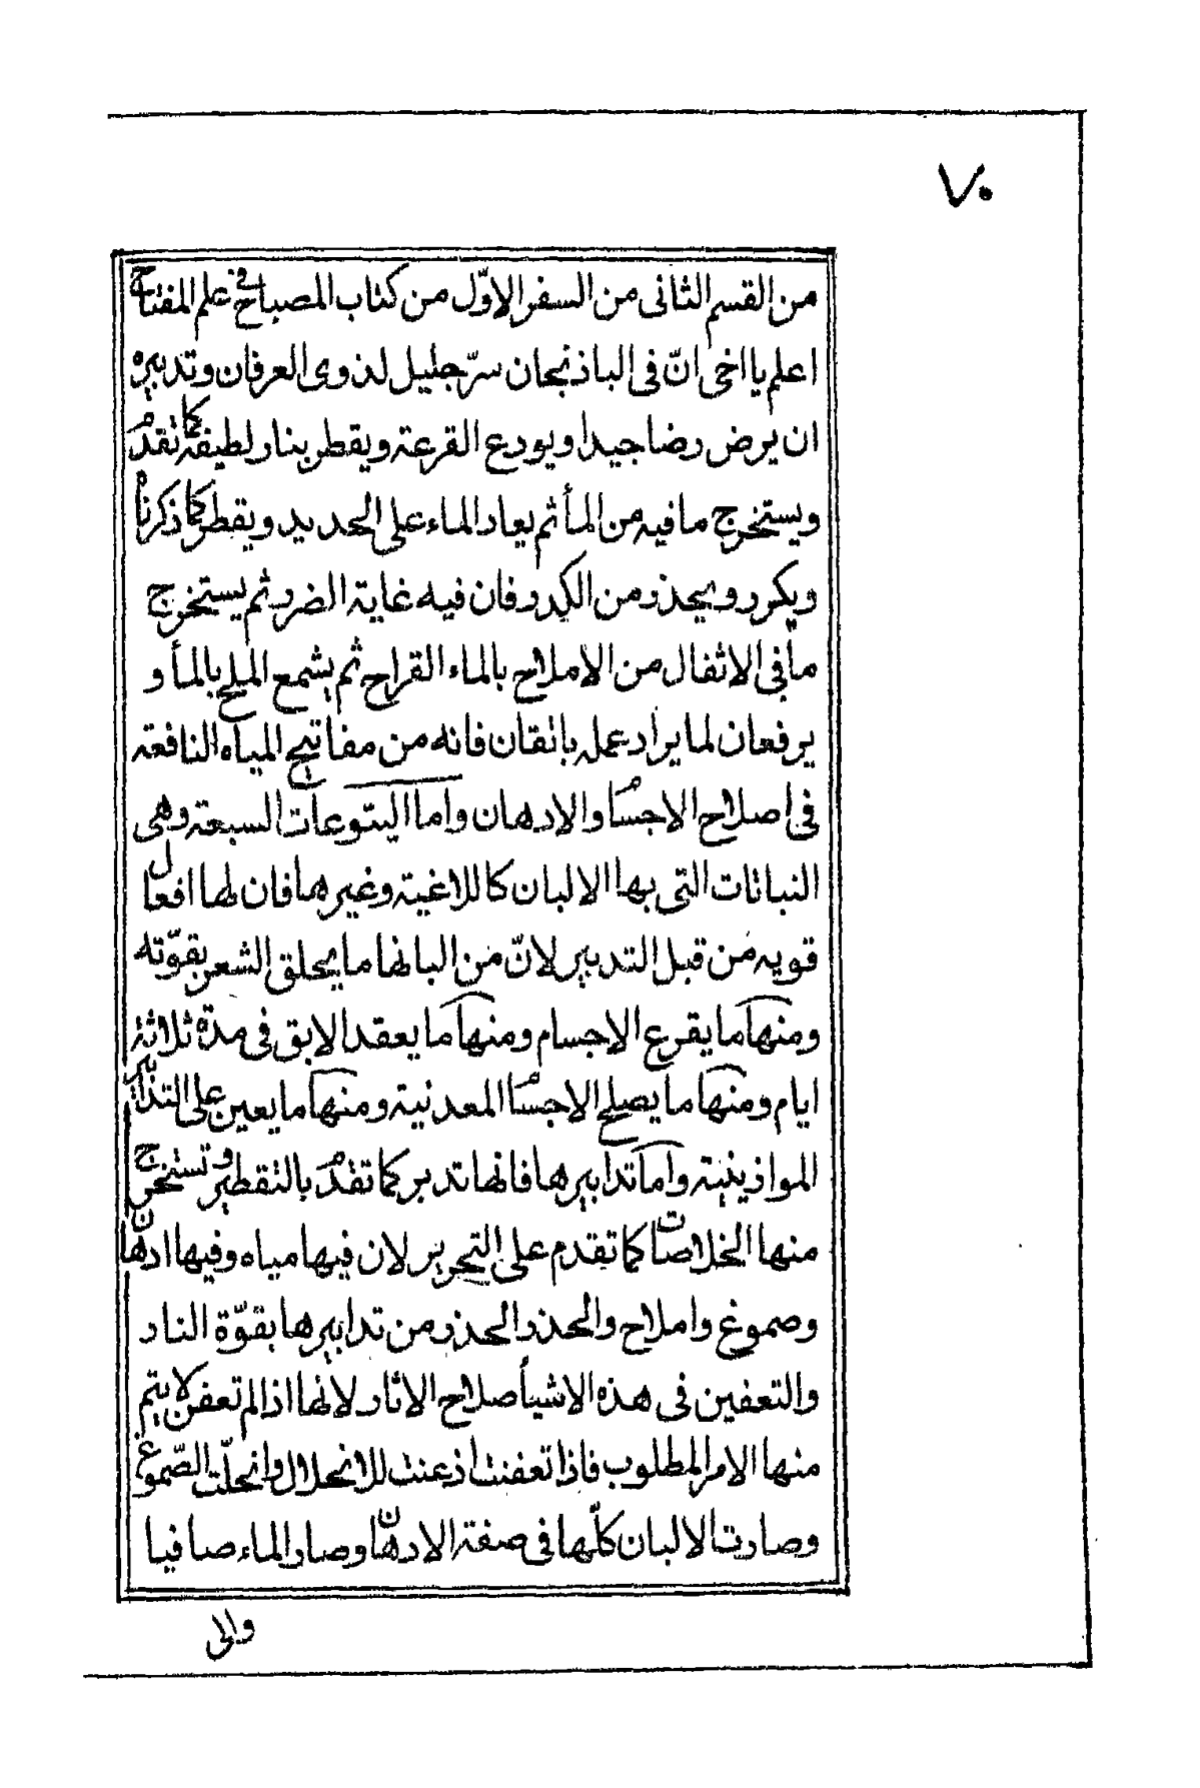 ٧٠
من القسم الثانى من السفر الاوّل من كتاب المصباح فى علم المفتاح
اعلم يا اخى انّ فى الباذنجان سرّ جليل لذوى العرفان وتدبيره
ان يرض رضا جيدا ويودع القرعة ويقطر بنار لطيفة كما تقدم
ويستخرج ما فيه من المأ ثم يعاد الماء على الحديد ويقطر كما ذكرنا
ويكرر ويحذر من الكدر فان فيه غاية الضرر ثم يستخرج
ما فى الاثفال من الاملاح بالماء القراح ثم يشمع الملح بالمأ و
يرفعان لما يراد عمله باتقان فانه من مفاتيح المياه النافعة
فى اصلاح الاجسام والادهان واما اليتوعات السبعة وهى
النباتات التى بها الالبان كاللاغية وغيرها فان لها افعال
قويه من قبل التدبير لانّ من البانها ما يحلق الشعر بقوّته
ومنها ما يقرع الاجسام ومنها ما يعقد الابق فى مدة ثلاثة
ايام ومنها ما يصلح الاجسام المعدنية ومنها ما يعين على التدابير
الموازينية واما تدابيرها فانها تدبر كما تقدم بالتقطير وتستخرج
منها الخلاصات كما تقدم على التحرير لان فيها مياه وفيها ادهان
وصموغ واملاح والحذر الحذر من تدابيرها بقوّة النار
والتعفين فى هذه الاشيأ صلاح الاثار لانها اذا لم تعفن لا يتم
منها الامر المطلوب فاذا تعفنت اذعنت للانحلال وانحلّت الصّموغ
وصارت الالبان كلّها فى صفة الادهان وصار الماء صافيا
والى